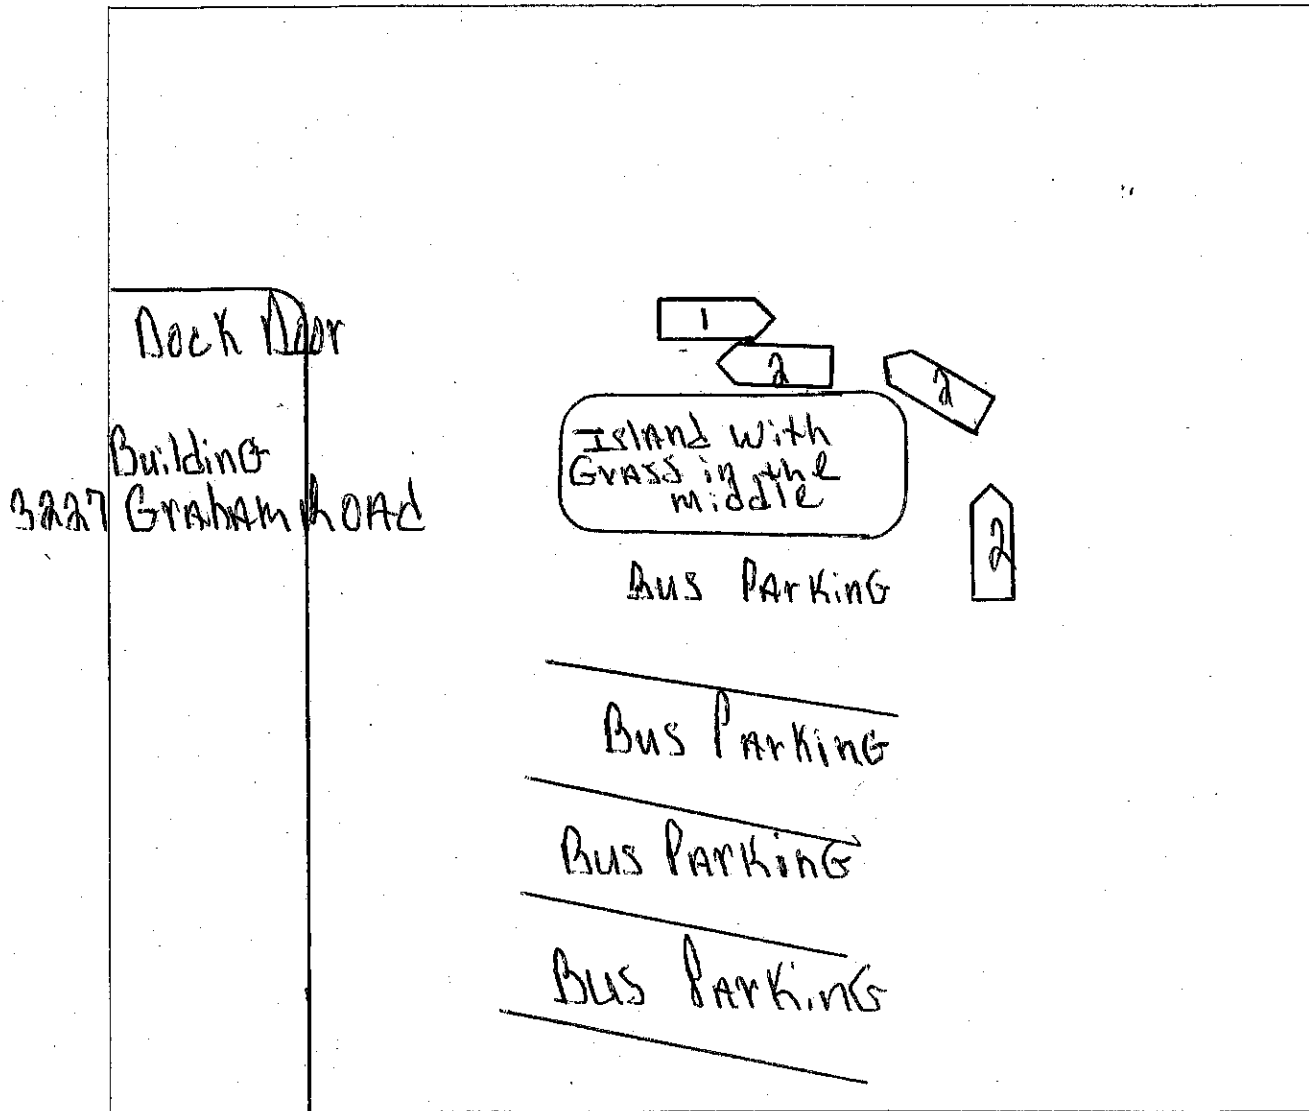 Dock Door
1
2
2
Building
3227 Graham Road
Island with
Grass in the
middle
2
Bus Parking
Bus Parking
Bus Parking
Bus Parking